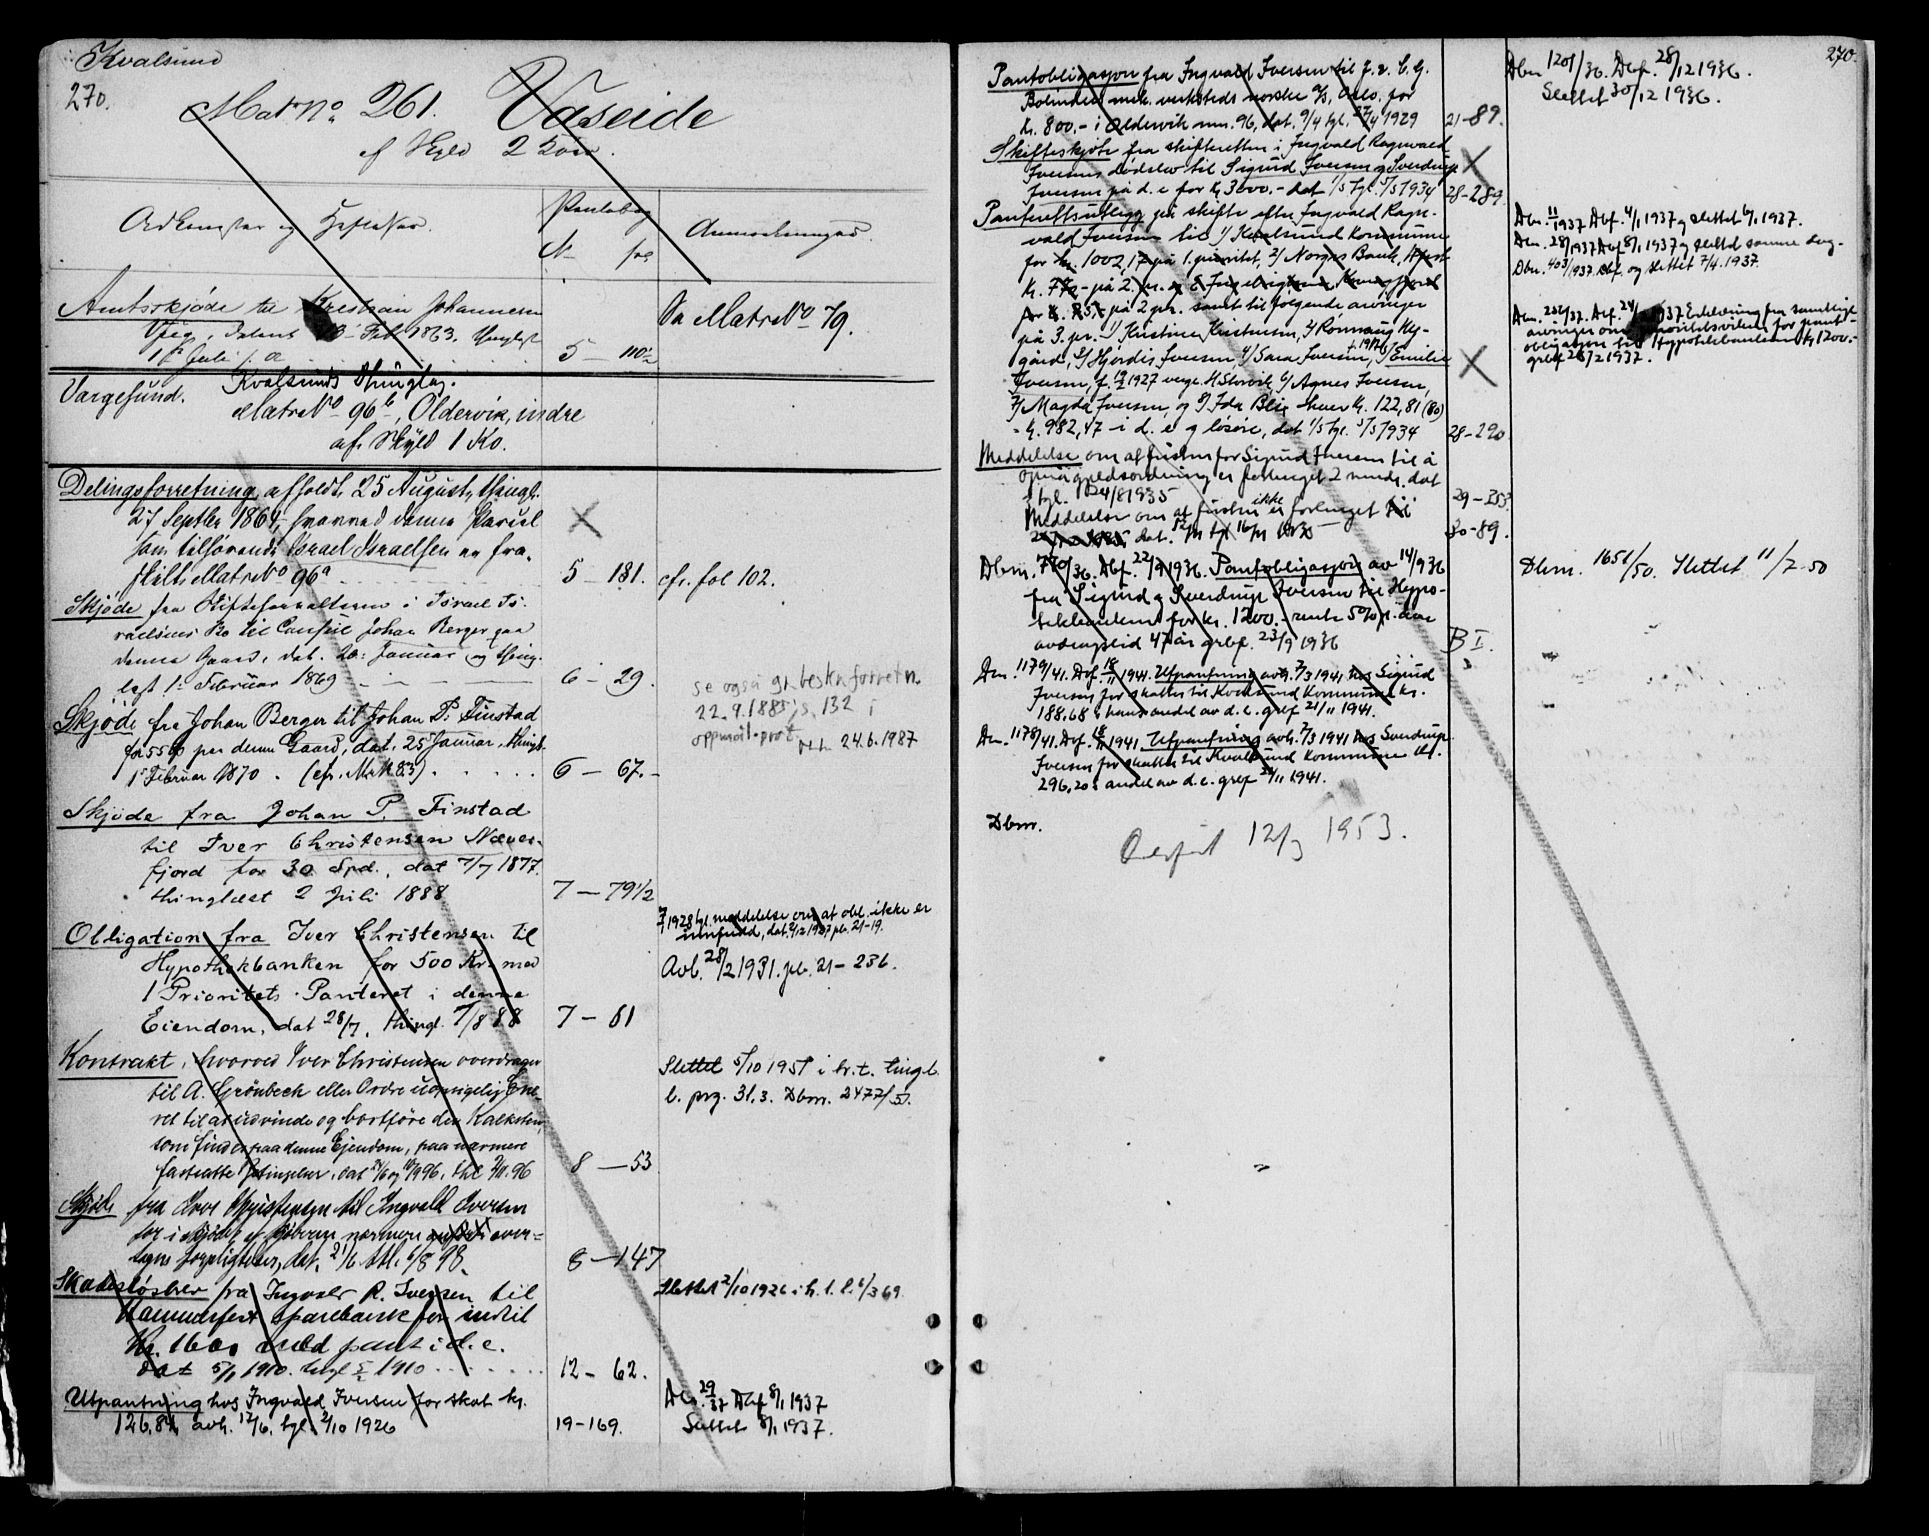 Kvalsund
270.
Matr No 261. Vaseide
af Skyld 2
Adkomster og Heftelser.
Pantebog
N fol
Anmerkninger.
Amtsskjøde til Kristian Johannesen
1863.
5 — 110 1/2
Se MatrNo 79.
Vargesund. Kvalsunds Thinglag.
MatrNo 96b, Oldervik, indre
af Skyld 1 Ko.
Delingsforretning afholdt 25 August, thingl.
27 Septbr 1864, hvorved denne Parcel
som tilhørende Israel Israelsen er fra-
skilt MatrNo 96a
5 — 181. cfr. fol 102.
Skjøde fra Skifteforvalteren i Israel Is-
raelsens Bo til Johan Berger paa
denne Gaard, dat. 20. Januar og thing-
lyst 1. Februar 1869
6 — 29.
se også gr.beskr.forretn.
22.9.1885, s. 132 i
oppmål.prot.
24.6.1987
Skjøde fra Johan Berger til Johan P. Finstad
paa denne Gaard, dat. 25 Januar, thingl.
1 Februar 1870. (cfr. M.N. 83)
6 — 67.
Skjøde fra Johan P. Finstad
til Iver Christensen Næver-
fjord for 30 Spd., dat 7/7 1877.
thinglæst 2 Juli 1888
7 — 79 1/2
Obligation fra Iver Christensen til
Hypothekbanken for 500 Kr. med
1 Prioritets Panteret i denne
Eiendom, dat 28/7, thingl. 7/8 88
7 — 81
1928 tgl. meddelelse om at obl. ikke er
innfridd, dat. 2/12 1927 pb. 21-19.
Avl. 28/2 1931. pb. 21 - 236.
Kontrakt, hvorved Iver Christensen overdrager
til A. Grönbeck eller Ordre uopsigelig Ene-
ret til at udvinde og bortföre den Kalksten,
som findes paa denne Ejendom, paa nærmere
fastsatte Betingelser, dat
8 — 53
Slettet 5/10 1951 i h.t. tingl.
l. prg. 31.3. Dbnr. 2477/51.
Skjøde fra Iver Christensen til Ingvald Iversen
for i Skjødet
tagne Forpligtelser, dat. 21/6 thl. 6/8 98.
8 — 147
Skadesløsbrev fra Ingvald R. Iversen til
Hammerfest Sparebank for indtil
Kr. 1600 med pant i d.e.
dat 5/1 1910. tingl 1910
12 - 62.
Slettet 2/10 1926 i h. t. l. 6/3 69.
Utpantning hos Ingvald Iversen for skat kr.
126,84, avh. 17/6. tgl. 2/10 1926
19-169.
Dbn. 29/37 Dbf 8/1 1937
Slettet 8/1 1937.
270.
Pantobligasjon fra Ingvald Iversen til
Bolinders mek. verksteds norske A/S, Oslo, for
kr. 800.- i Oldervik mnr. 96, dat. 9/4 tgl. 27/4 1929
21-89.
Dbn 1201/36. Dbf. 28/12 1936.
Slettet 30/12 1936.
Skifteskjøte fra skifteretten i Ingvald Ragnvald
Iversens dødsbo til Sigurd Iversen og Sverdrup
Iversen på d.e for kr 3000.- dat 1/5 tgl. 5/5 1934
28-289.
Panterettsutlegg på skifte efter Ingvald Ragn-
vald Iversen til 1/ Kvalsund kommune
for kr. 1002,17 på 1. prioritet, 2/ Norges Bank, Hfest
på 2 pr. samt til følgende arvinger
på 3. pr. 1/ Kristine Kristensen, 2/ Rønnaug Ny-
gård, 3/ Hjørdis Iversen 4/ Sara Iversen, 5/ Emilie
Iversen, f. 1927 verge H. Storvik 6/ Agnes Iversen,
7/ Magda Iversen, og 8/ Ida Blix hver kr. 122,81 (80)
- kr. 982,47 - i d.e og løsøre, dat 1/5 tgl. 5/5 1934
28-290.
Dbn. 11/1937 Dbf. 4/1 1937 og slettet 6/1 1937.
Dbn. 28/1937 Dbf 8/1 1937 og slettet samme dag.
Dbn. 403/1937 Dbf. og slettet 7/4. 1937.
Dbn. 232/37. Dbf. 24/ 1937 Erklæring fra samtlige
arvinger om prioritetsvikelse for pant-
obligasjon til Hypotekbanken kr 1200.-
grbf 26/2 1937.
Meddelelse om at fristen for Sigurd Iversen til å
oppnå gjeldsordning er forlenget 2 mndr. dat
tgl. 24/8 1935
29 - 253
Meddelelse om at fristen ikke er forlenget
30-89.
Dbnr. 770/36. Dbf. 22/9 1936. Pantobligasjon av 14/ 936
fra Sigurd og Sverdrup Iversen til Hypo-
tekbanken for kr. 1200.- rente 5% p. anno
avdragstid 47 år grbf. 23/9 1936
B I.
Dbnr. 1651/50. Slettet 11/7-50
Dbn. 1179/41. Dbf. 18/11 1941. Utpantning avh. 7/3 1941 hos Sigurd
Iversen for skatter til Kvalsund kommune kr.
188.68 i hans andel av d.e. grbf 21/11 1941.
Dbn. 1178/41. Dbf. 18/11 1941 Utpantning avh. 7/3 1941 hos Sverdrup
Iversen for skatter til Kvalsund kommune kr.
296,20 i andel av d.e. grbf 21/11 1941.
Dbnr.
Overført 12/3 1953.